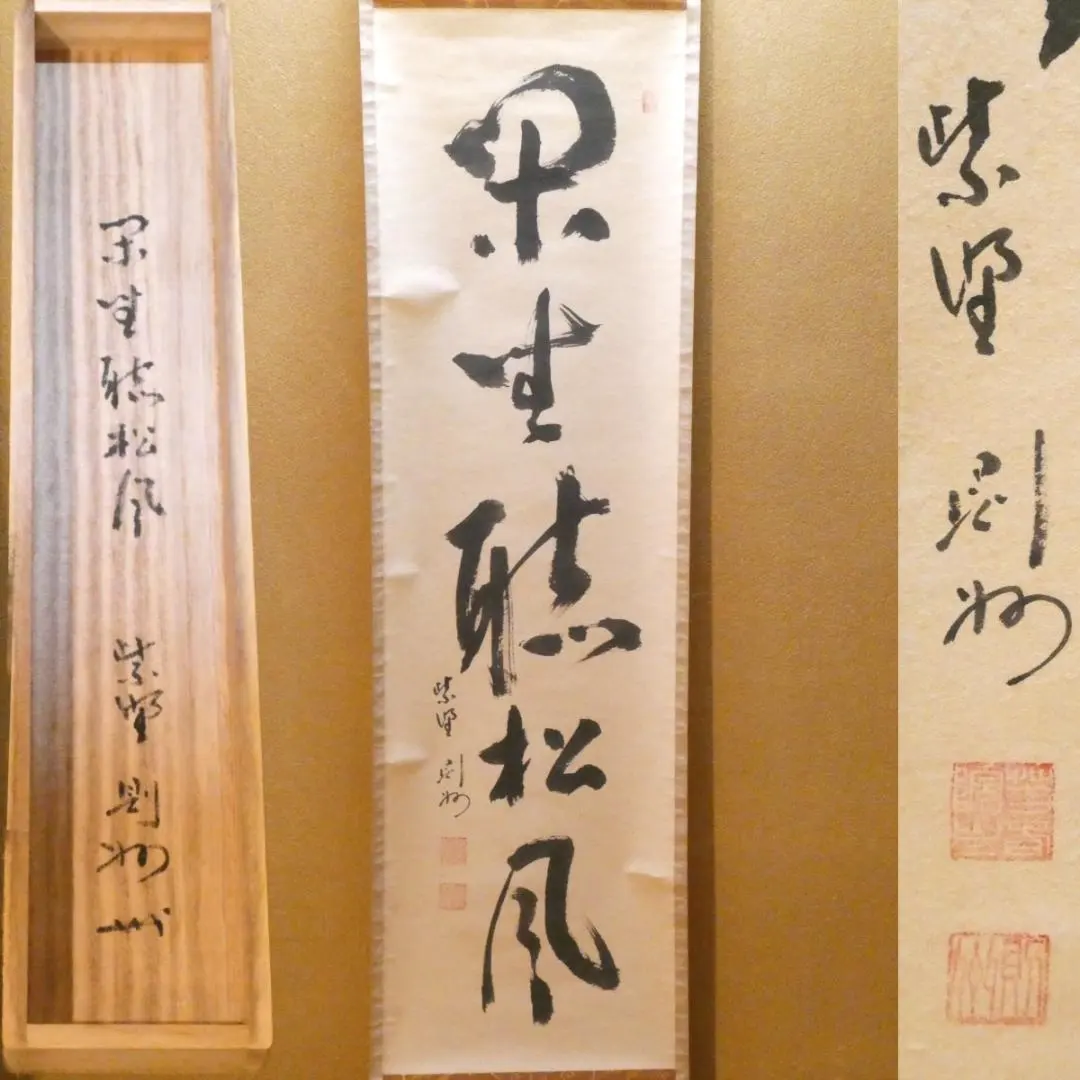 閑坐聴松風
紫野 則州 書
閑坐聴松風
紫野 則州
紫野
則州
則州